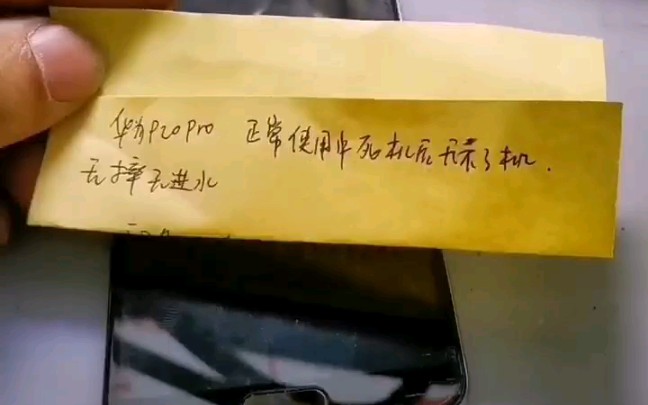 华为P20Pro 正常使用中死机后无法开机.
无摔无进水